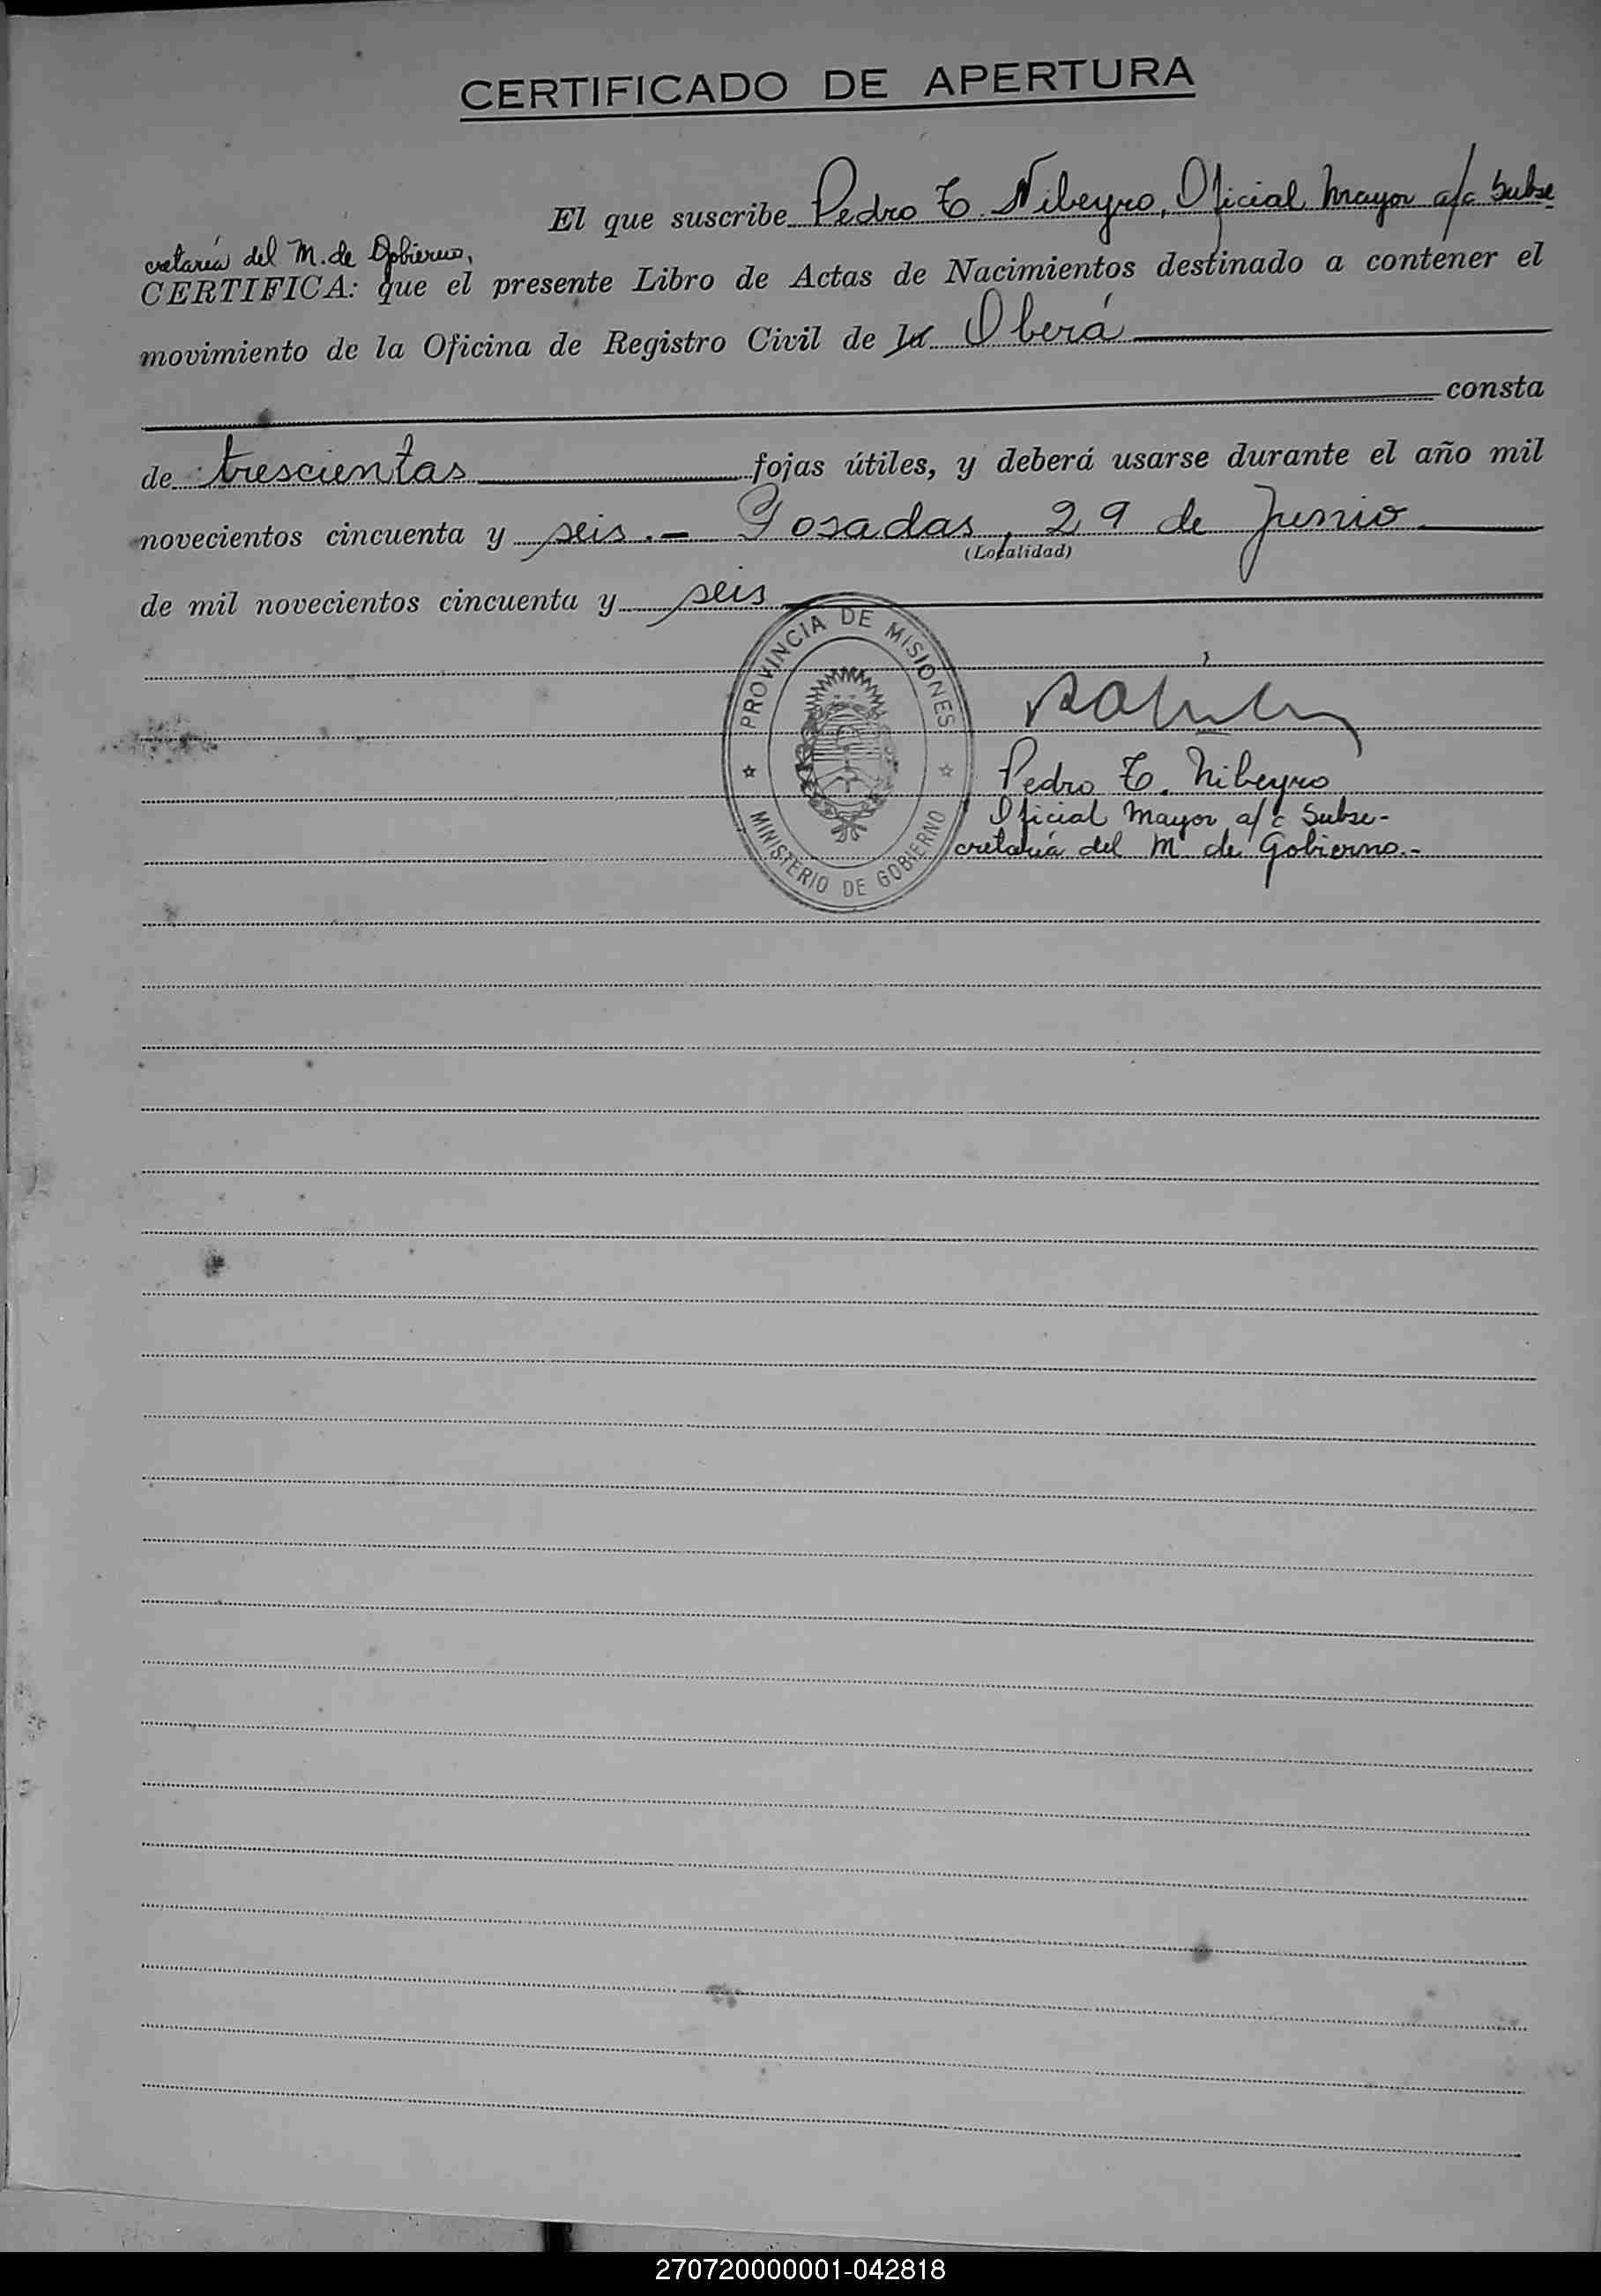 CERTIFICADO DE APERTURA
El que suscribe Pedro E. Nibeyro, Oficial Mayor a/c Subse-
cretaría del M. de Gobierno,
CERTIFICA: que el presente Libro de Actas de Nacimientos destinado a contener el
movimiento de la Oficina de Registro Civil de la Oberá
consta
de trescientas fojas útiles, y deberá usarse durante el año mil
novecientos cincuenta y seis.- Posadas, 29 de Junio
(Localidad)
de mil novecientos cincuenta y seis
PROVINCIA DE MISIONES
MINISTERIO DE GOBIERNO
Pedro E. Nibeyro
Oficial Mayor a/c Subse-
cretaría del M. de Gobierno.-
270720000001-042818